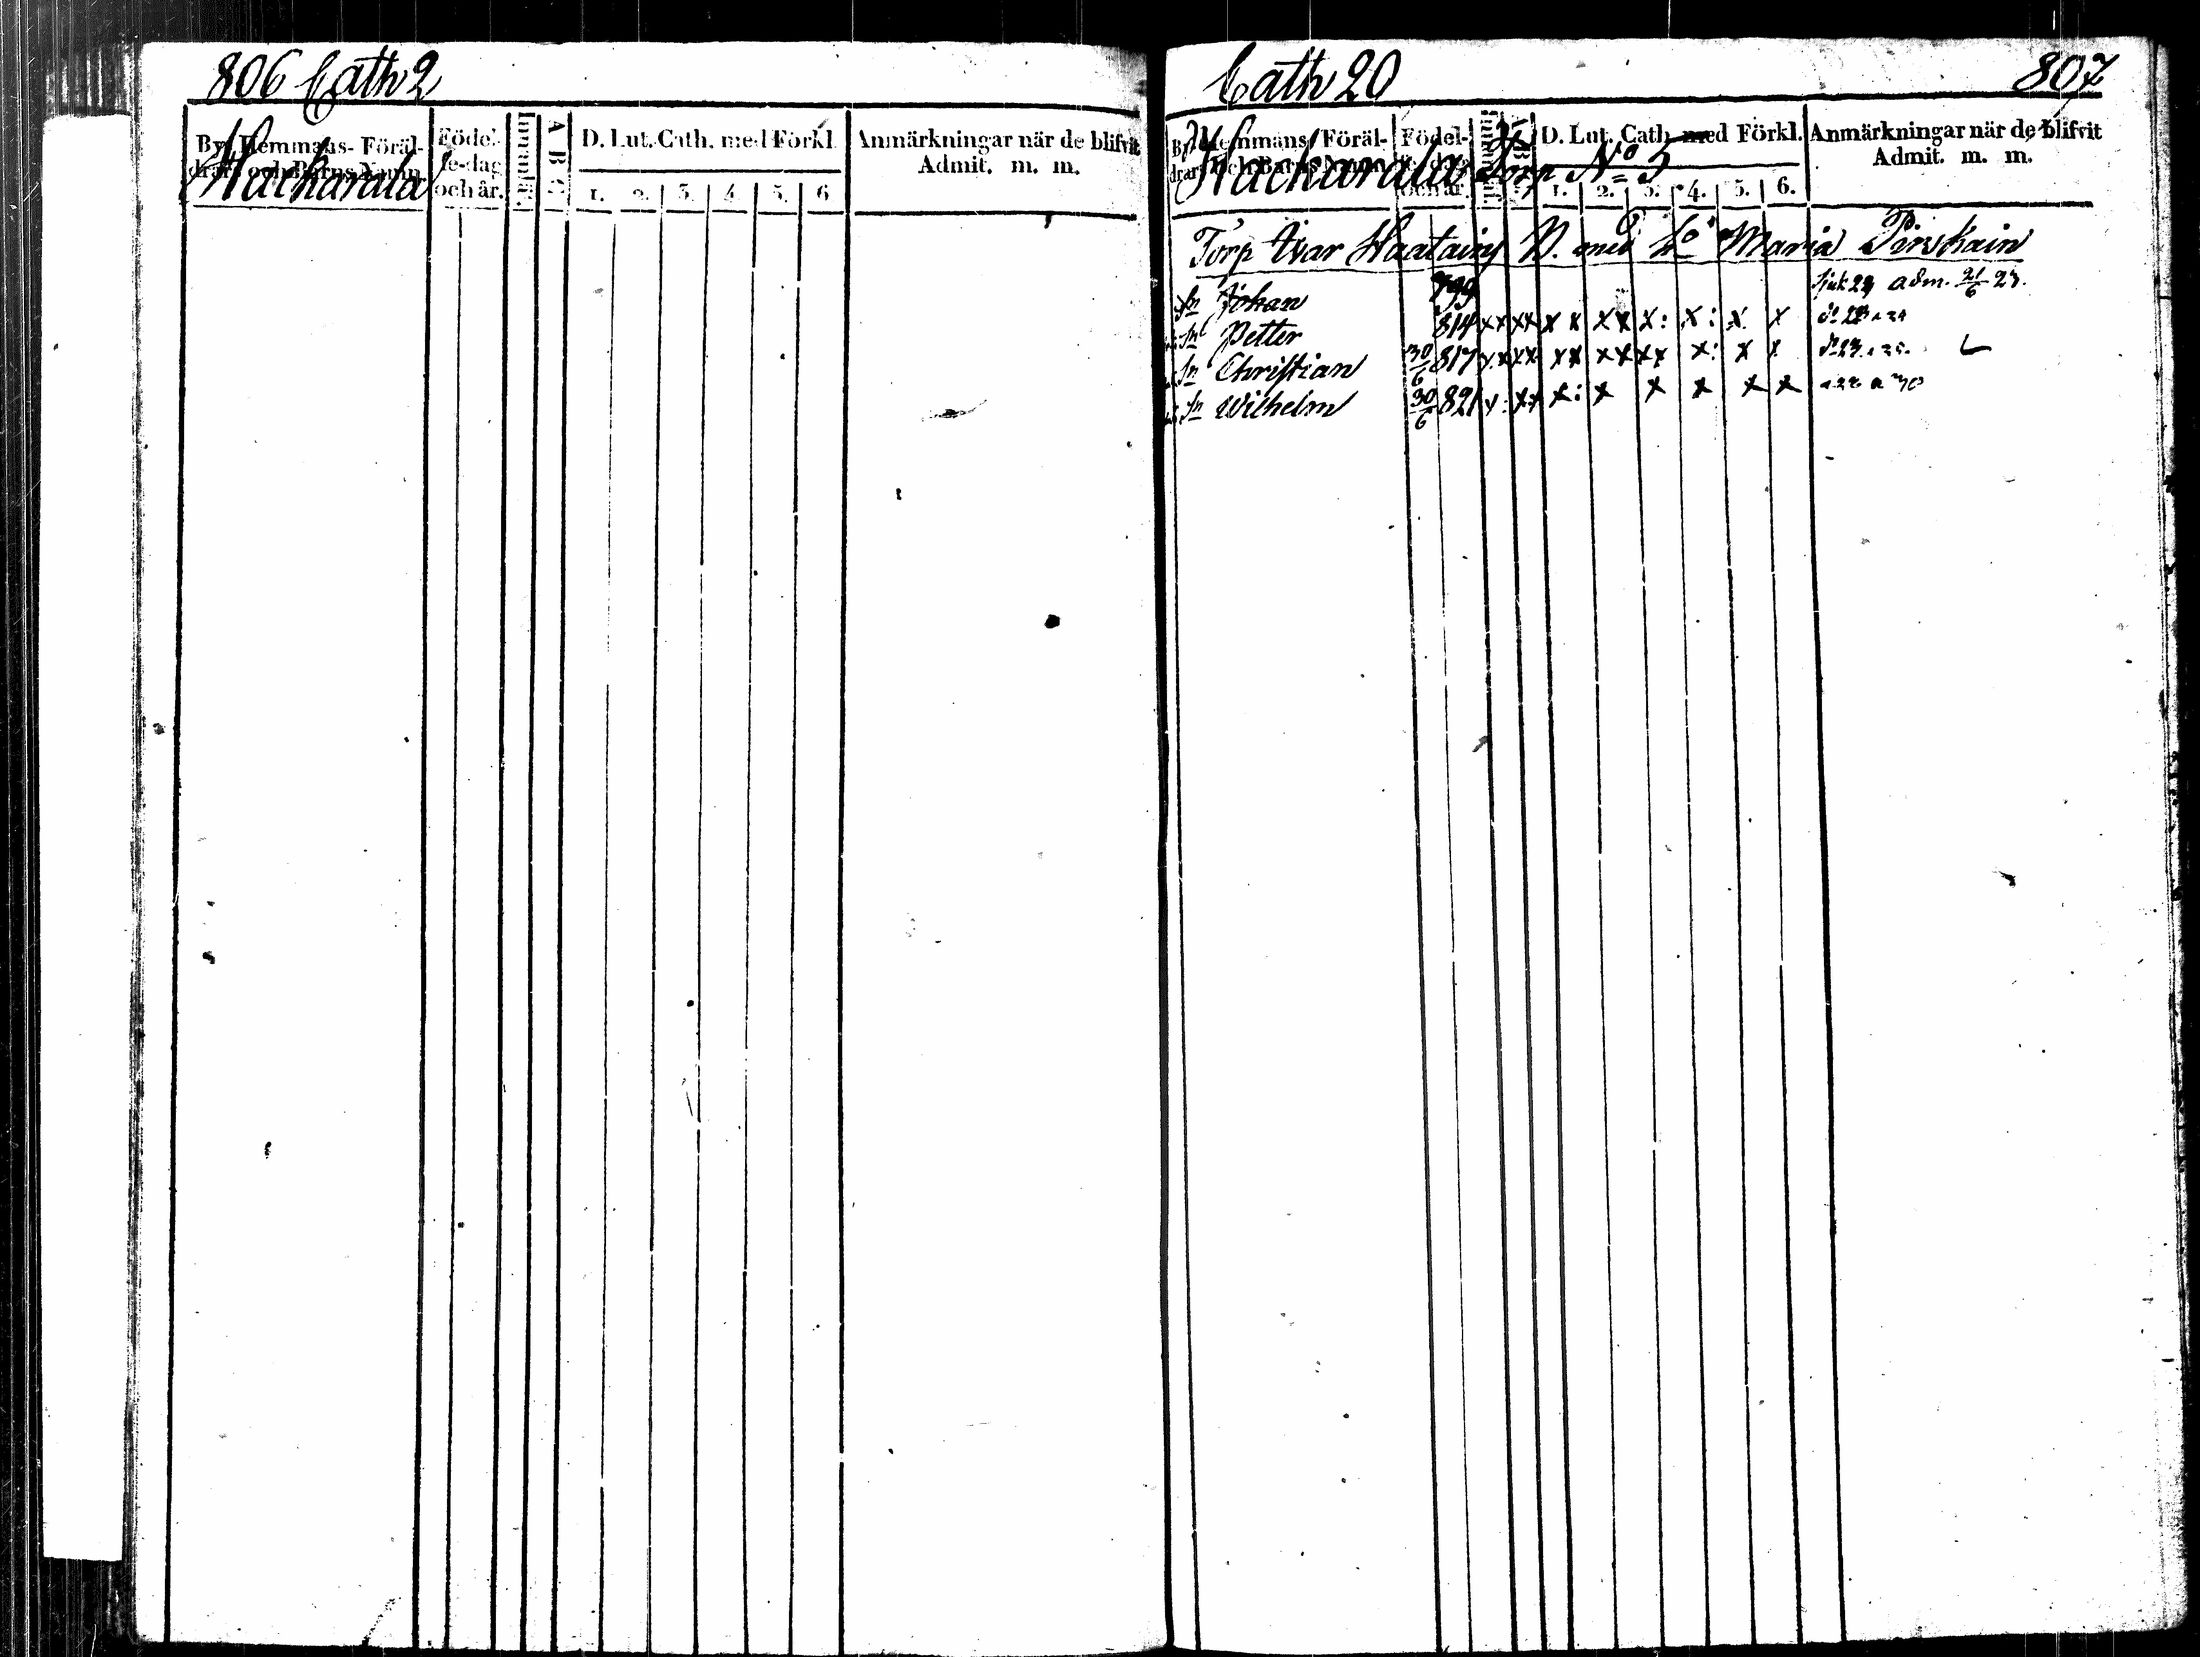 806 Cath 2
By, Hemmans- Föräl-
drars och Barns Namn.
Hackarala
Födel-
se-dag
och år.
A B C
D. Lut. Cath. med Förkl.
1. 2. 3. 4. 5. 6
Anmärkningar när de blifvit
Admit. m. m.
Cath 20 807
By, Hemmans, Föräl-
drars och Barns Namn
Hackarala Torp No 5
Födel-
se-dag
och år.
A B C
D. Lut. Cath. med Förkl.
1. 2. 3. 4. 5. 6.
Anmärkningar när de blifvit
Admit. m. m.
Torp Ivar Haatain med Maria Pirskain
Sn Johan 799 adm. 21/6 23.
Sn Petter 814 x x x x x x x x x : x : x x
Sn Christian 30/6 817 x x x x x x x x x x x : x x
Sn Wilhelm 30/6 821 x : x x x : x x x x x